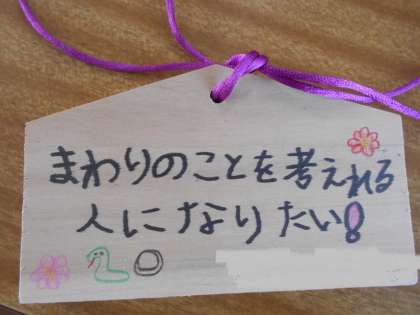 まわりのことを考えれる
人になりたい!